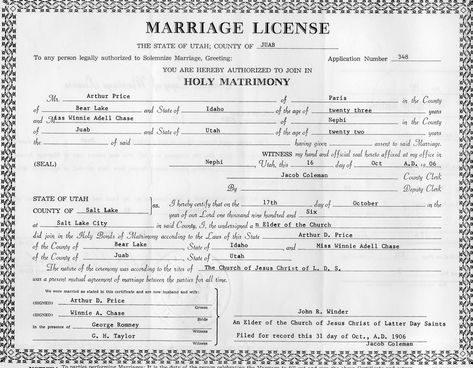 MARRIAGE LICENSE
THE STATE OF UTAH; COUNTY OF JUAB
To any person legally authorized to Solemnize Marriage, Greeting: Application Number 348
YOU ARE HEREBY AUTHORIZED TO JOIN IN
HOLY MATRIMONY
Mr. Arthur Price of Paris in the County
of Bear Lake and State of Idaho of the age of twenty three years
and Miss Winnie Adell Chase of Nephi in the County
of Juab and State of Utah of the age of twenty two years
the of said having given assent to said Marriage.
WITNESS my hand and official seal hereto affixed at my office in
(SEAL) Nephi, Utah, this 16 day of Oct A.D. 1906
Jacob Coleman County Clerk
By Deputy Clerk
STATE OF UTAH
COUNTY OF Salt Lake ss. I hereby certify that on the 17th day of October in the
year of our Lord one thousand nine hundred and Six
at Salt Lake City in said County, I, the undersigned a n Elder of the Church
did join in the Holy Bonds of Matrimony according to the Laws of this State Arthur D. Price
of the County of Bear Lake State of Idaho and Miss Winnie Adell Chase
of the County of Juab, State of Utah
The nature of the ceremony was according to the rites of The Church of Jesus Christ of L. D. S.
was a present mutual agreement of marriage between the parties for all time.
We were married as stated in this certificate and are now husband and wife:
(SIGNED) Arthur D. Price
Groom
(SIGNED) Winnie A. Chase
Bride
In the presence of George Romney
Witness
G. H. Taylor
Witness
John R. Winder
An Elder of the Church of Jesus Christ of Latter Day Saints
Filed for record this 31 day of Oct., A.D. 1906
Jacob Coleman